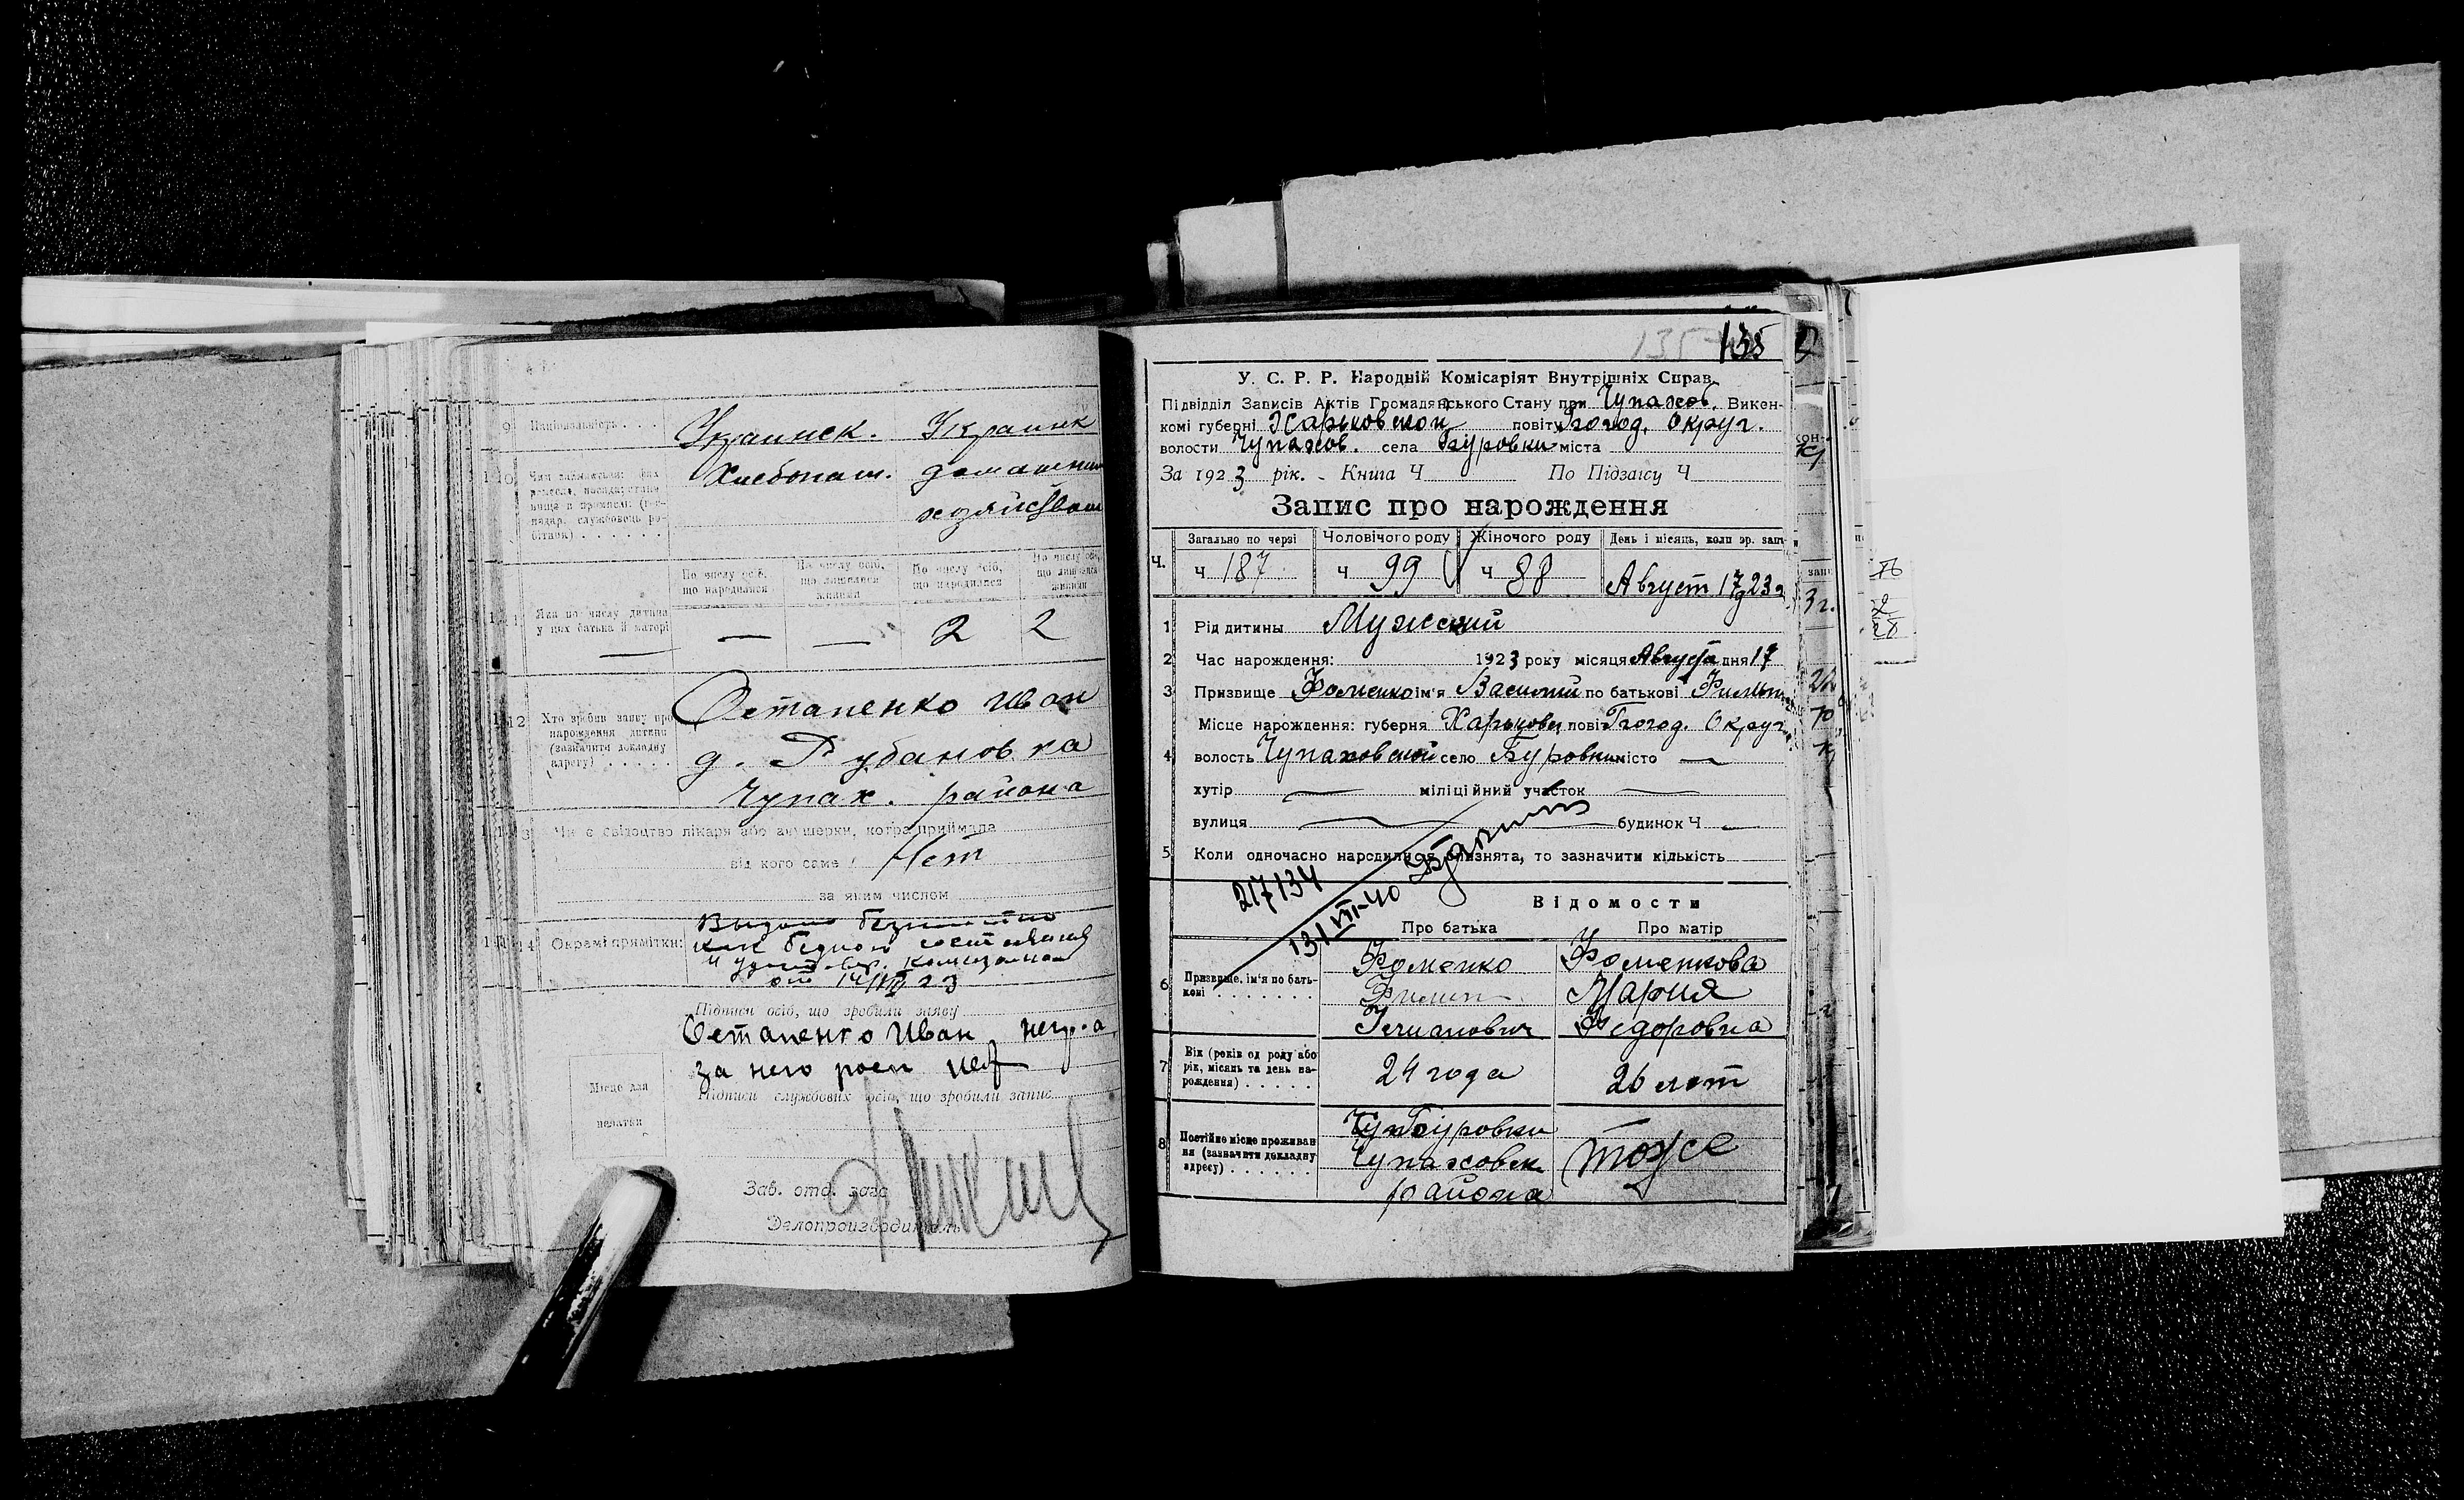 9 Національність . . . Украинск. Украинк
10 Чим займається: фах Хлебопаш. домашним
ремесло, посада, стано-
вище в промислі: (гос-
подар. службовець ро- хозяйством
бітник) . . . . . .
По числу осіб, що народилися На числу осіб, що лишилися живими По числу осіб, що народилися На числу осіб, що лишилися живими
11 Яка по числу дитина у цих батька й матері — — 2 2
12 Хто зробив заяву про Остапенко Иван
нарождення дитини
(зазначити докладну д. Рубановка
адресу) . . . . . Чупах. района
13 Чи є свідоцтво лікаря або акушерки, котра приймала
від кого саме Нет
за яким числом
14 Окремі примітки: Выдано безплатно
как бедному
от 14/VIII 23
Підписи осіб, що зробили заяву
Остапенко Иван негр-а
за него росп
Місце для печатки
Підписи службових осіб, що зробили запис
Зав. отд. загс
Делопроизводитель
135
135
У. С. Р. Р. Народній Комісаріят Внутрішніх Справ.
Підвідділ Записів Актів Громадянського Стану при Чупахов. Викен-
комі губерні Харьковской повіту Богод. Округ.
волости Чупахов. села Буровки міста
За 1923 рік. - Книга Ч По Підзапису Ч
Запис про народження
Загально по черзі Чоловічого роду Жіночого роду День і місяць, коли зр. запи
Ч. Ч 187 Ч 99 Ч 88 Август 17 23
1 Рід дитины Мужский
2 Час нарождення: 1923 року місяця Августа дня 17
3 Призвище Фоменко ім'я Василий по батькові Филип
Місце нарождення: губерня Харьковск повіт Богод. Округ
4 волость Чупаховской село Буровки місто —
хутір — міліційний участок —
вулиця — будинок Ч —
5 Коли одночасно народилися близнята, то зазначити кількість
217134
13/VIII-40
Відомости
Про батька Про матір
6 Призвище, ім'я по бать- Фоменко Фоменкова
кові . . . . . . . Филип Мария
Федоровна
7 Вік (років од роду або рік, місяць та день на-рождення) . . . . . 24 года 26 лет
8 Постійне місце проживан- Буровки
ня (зазначити докладну Чупаховск тоже
адресу) . . . . . . района